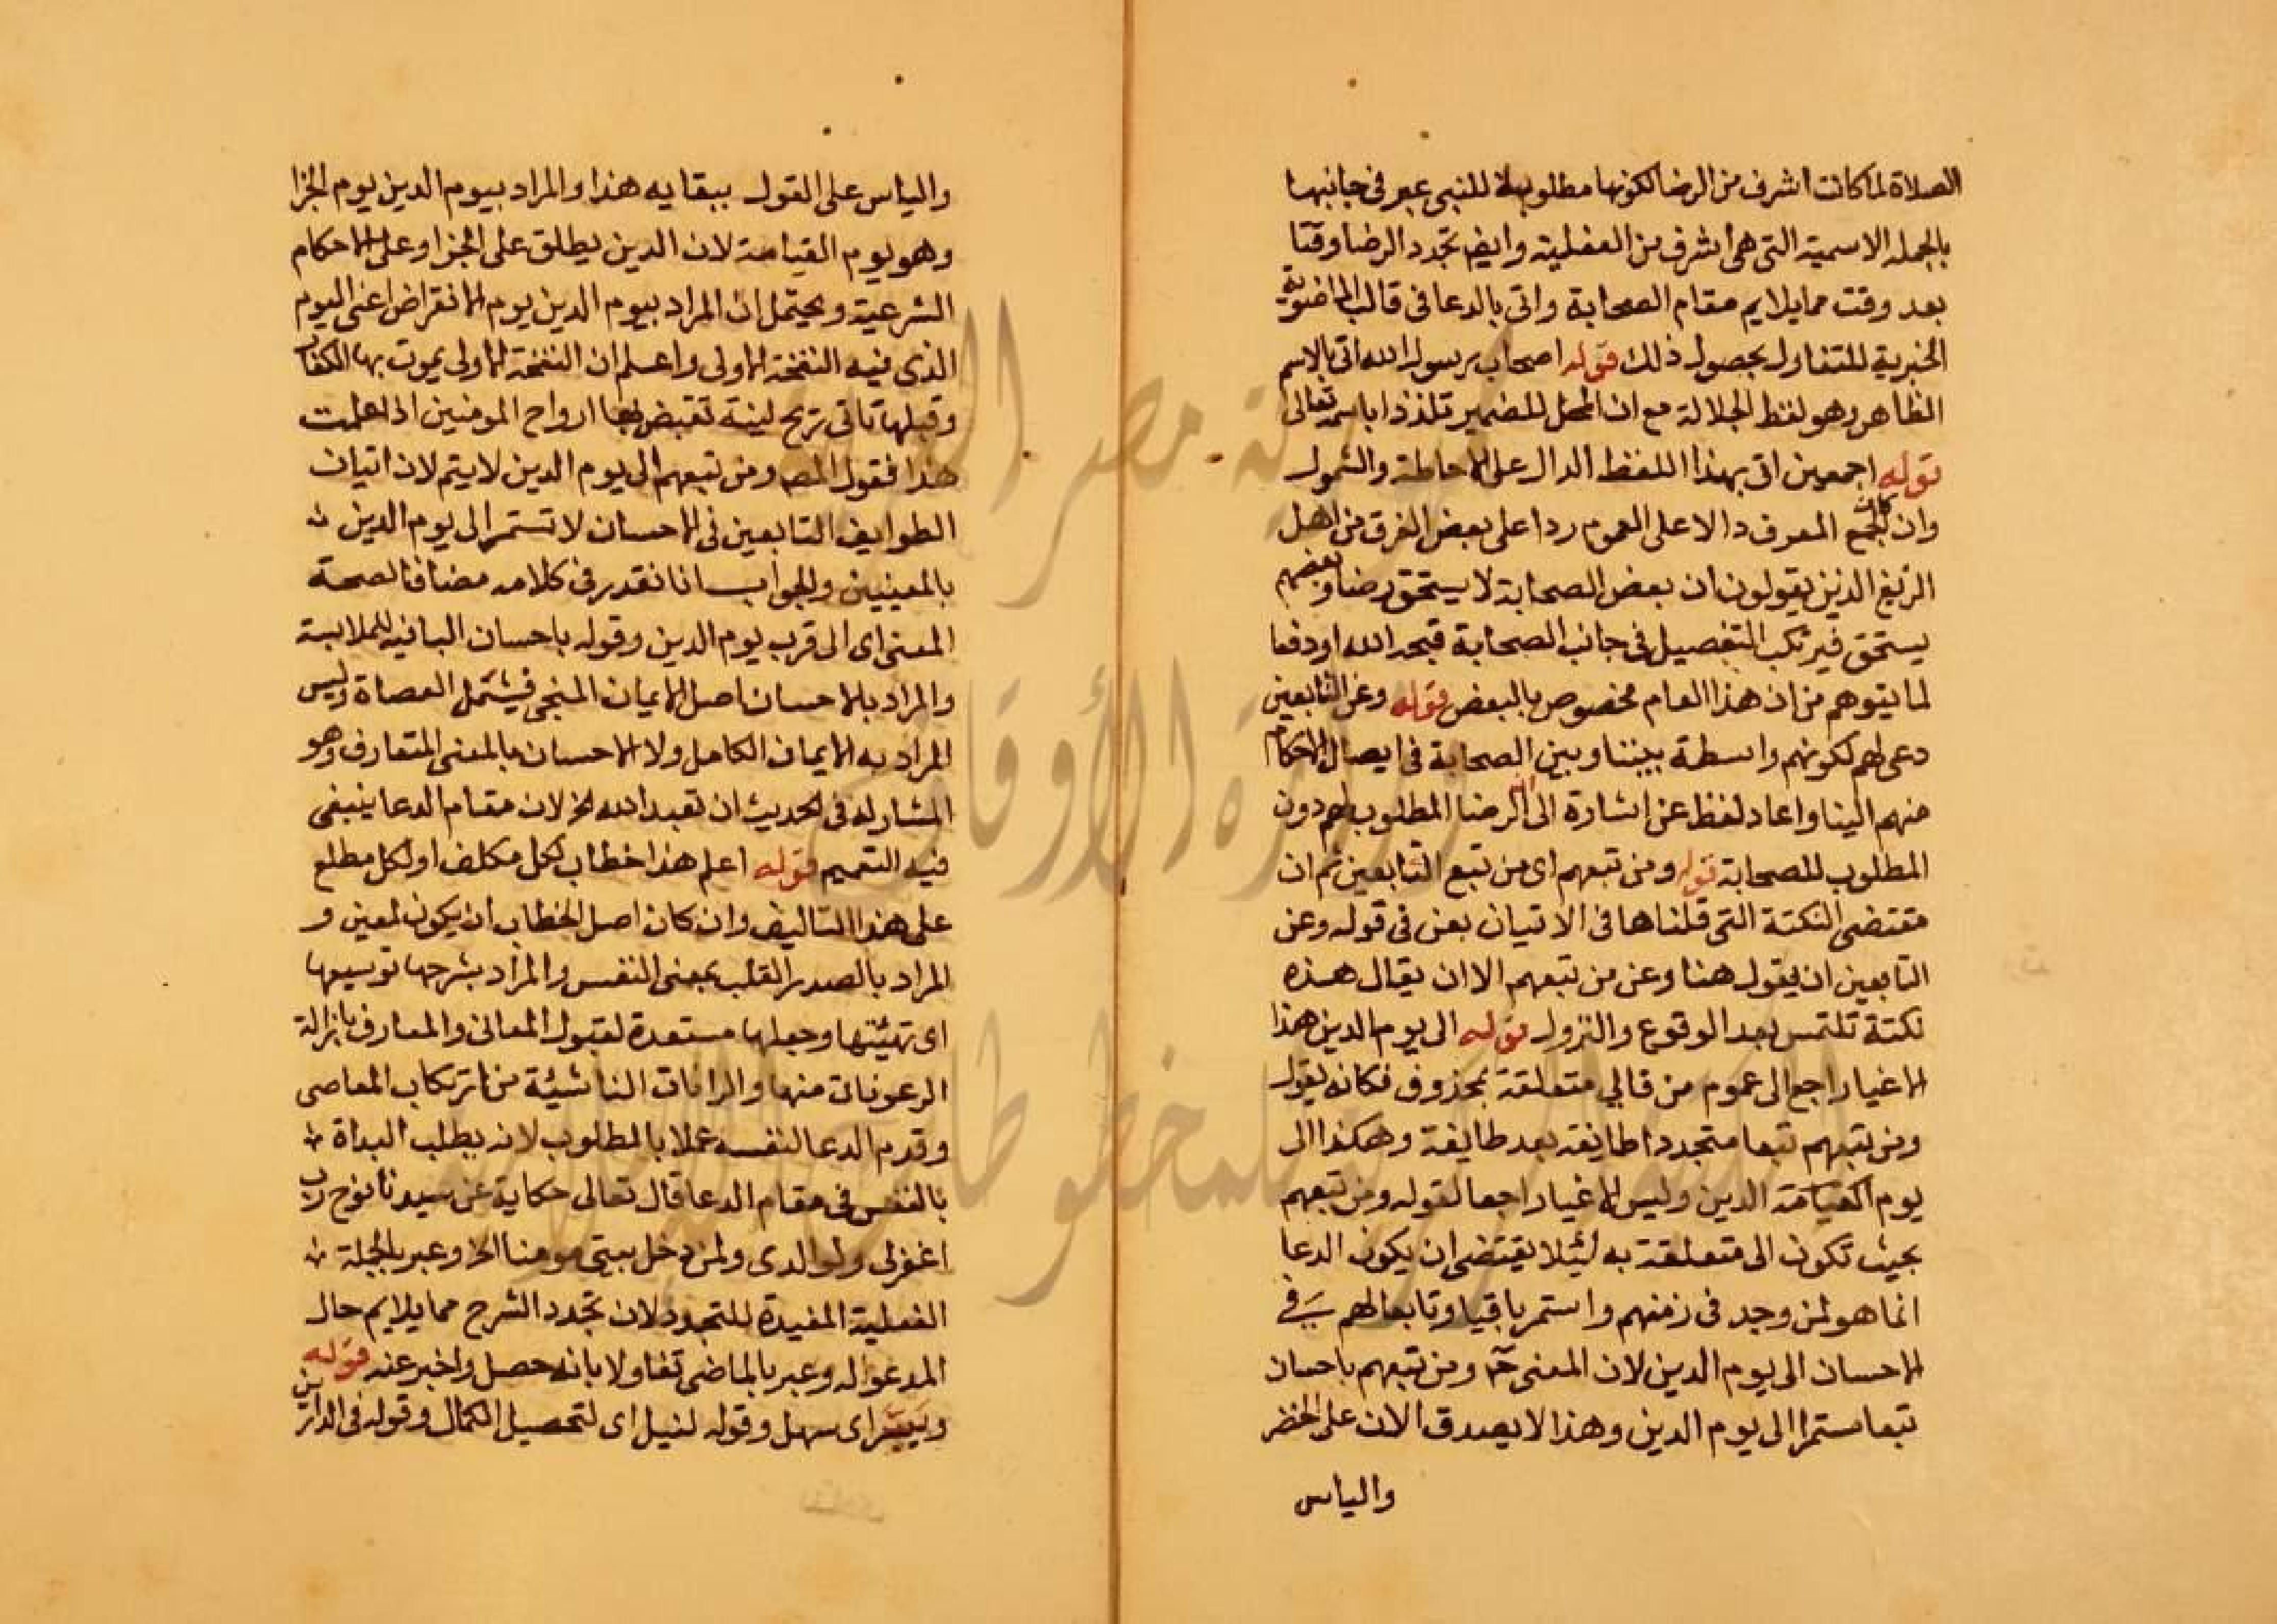 الصلاة لما كانت اشرف من الرضا لكونها مطلوبة للنبى عبر فى جانبها
بالجمله الاسمية التى هى اشرف من الفعلية وايض تجدد الرضا وقتا
بعد وقت مما يلايم مقام الصحابة واتى بالدعا فى قالب الماضوية
الخبرية للتفاول بحصول ذلك قوله اصحاب رسول الله اتى بالاسم
الظاهر وهو لفظ الجلالة مع ان المحل للضمير تلذذا باسمه تعالى
قوله اجمعين اتى بهذا اللفظ الدال على الاحاطة والشمول
وان كان الجمع المعرف دالا على العموم ردا على بعض الفرق من اهل
الزيغ الذين يقولون ان بعض الصحابة لا يستحق رضا وبعضهم
يستحق فيرتكب التفصيل فى جانب الصحابة قبحه الله او دفعا
لما يتوهم من ان هذا العام مخصوص بالبعض قوله وعن التابعين
دعى لهم لكونهم واسطة بيننا وبين الصحابة فى ايصال الاحكام
منهم الينا واعاد لفظ عن اشارة الى ان الرضا المطلوب لهم دون
المطلوب للصحابة قوله ومن تبعهم اى من تبع التابعين ثم ان
مقتضى النكتة التى قلناها فى الاتيان بعن فى قوله وعن
التابعين ان يقول هنا وعن من تبعهم الا ان يقال هذه
نكتة تلتمس بعد الوقوع والنزول قوله الى يوم الدين هذا
الاغيا راجع الى عموم من فالى متعلقة بمحذوف فكانه يقول
ومن تبعهم تبعا متجددا طايفة بعد طايفة وهكذا الى
يوم القيامة الدين وليس الاغيا راجعا لقوله ومن تبعهم
بحيث تكون الى متعلقة به لئلا يقتضى ان يكون الدعا
انما هو لمن وجد فى زمنهم واستمر باقيا وتابعا لهم فى
الاحسان الى يوم الدين لان المعنى ح ومن تبعهم باحسان
تبعا مستمرا الى يوم الدين وهذا لا يصدق الان على الخضر
والياس
والياس على القول ببقايه هذا والمراد بيوم الدين يوم الجزا
وهو يوم القيامة لان الدين يطلق على الجزا وعلى الاحكام
الشرعية ويحتمل ان المراد بيوم الدين يوم الانقراض اعنى اليوم
الذى فيه النفخة الاولى واعلم ان النفخة الاولى يموت بها الكفار
وقبلها تاتى ريح لينة تقبض بها ارواح المومنين اذا علمت
هذا فقول المص ومن تبعهم الى يوم الدين لا يتم لان اتيان
الطوايف التابعين فى الاحسان لا تستمر الى يوم الدين
بالمعنيين والجواب انا نقدر فى كلامه مضافا لصحة
المعنى اى الى قرب يوم الدين وقوله باحسان البا فيه للملابسة
والمراد بالاحسان اصل الايمان المنجى فيشمل العصاة وليس
المراد به الايمان الكامل ولا الاحسان بالمعنى المتعارف وهو
المشار له فى الحديث ان تعبد الله الخ لان مقام الدعا ينبغى
فيه التعميم قوله اعلم هذا خطاب لكل مكلف او لكل مطلع
على هذا التاليف وان كان اصل الخطاب ان يكون لمعين و
المراد بالصدر القلب بمعنى النفس والمراد بشرحها توسيعها
اى تهيئتها وجعلها مستعدة لقبول المعانى والمعارف بازالة
الرعونات منها والرانات الناشيئة من ارتكاب المعاصى
وقدم الدعا لنفسه عملا بالمطلوب لانه يطلب البداة
بالنفس فى مقام الدعا قال تعالى حكاية عن سيدنا نوح رب
اغفرلى ولوالدى ولمن دخل بيتى مومنا الخ وعبر بالجملة
الفعلية المفيدة للتجدد لان تجدد الشرح مما يلايم حال
المدعو له وعبر بالماضى تفاولا بانه حصل واخبر عنه قوله
ويسر اى سهل وقوله لنيل اى لتحصيل الكمال وقوله فى الدارين